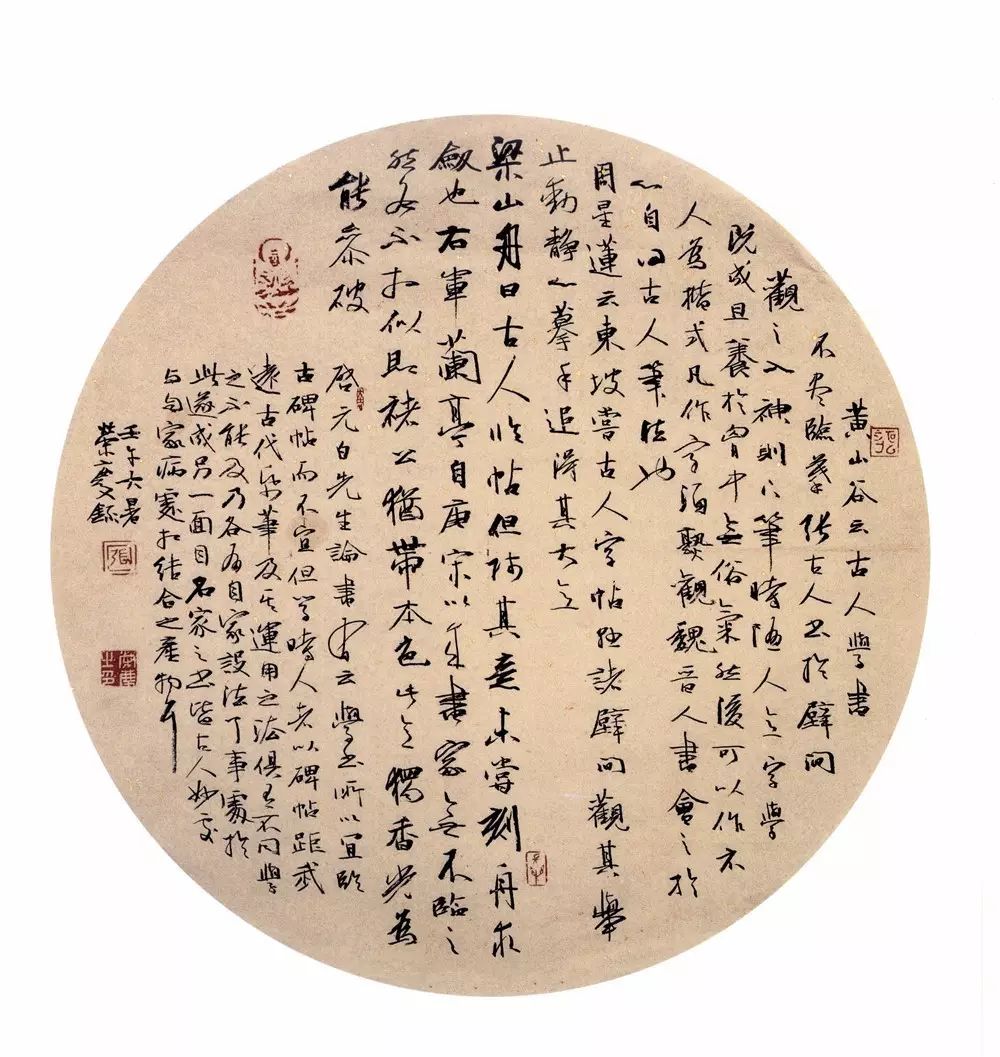 黄山谷云古人學書
不尽臨摹張古人书於壁间
觀之入神則下筆時隨人意字學
既成且養於胷中無俗氣然後可以作示
人爲楷式凡作字須熟觀魏晋人書會之於
心自得古人筆法也
周星蓮云東坡嘗古人字帖懸諸壁间觀其舉
止動靜心摹手追得其大意
梁山舟曰古人临帖但師其意未嘗刻舟求
劍也右軍蘭亭自唐宋以来書家無不臨之
然各不相似即褚公猶帶本色此意獨香光爲
能参破
啓元白先生論書有云學书所以宜臨
古碑帖而不宜但学時人者以碑帖距我
遠古代紙筆及其運用之法俱有不同學
之不能及乃各有自家設法了事處於
此遂成另一面目名家之书皆古人妙處
与自家病處相結合之産物耳
壬午大暑
榮慶錄
張